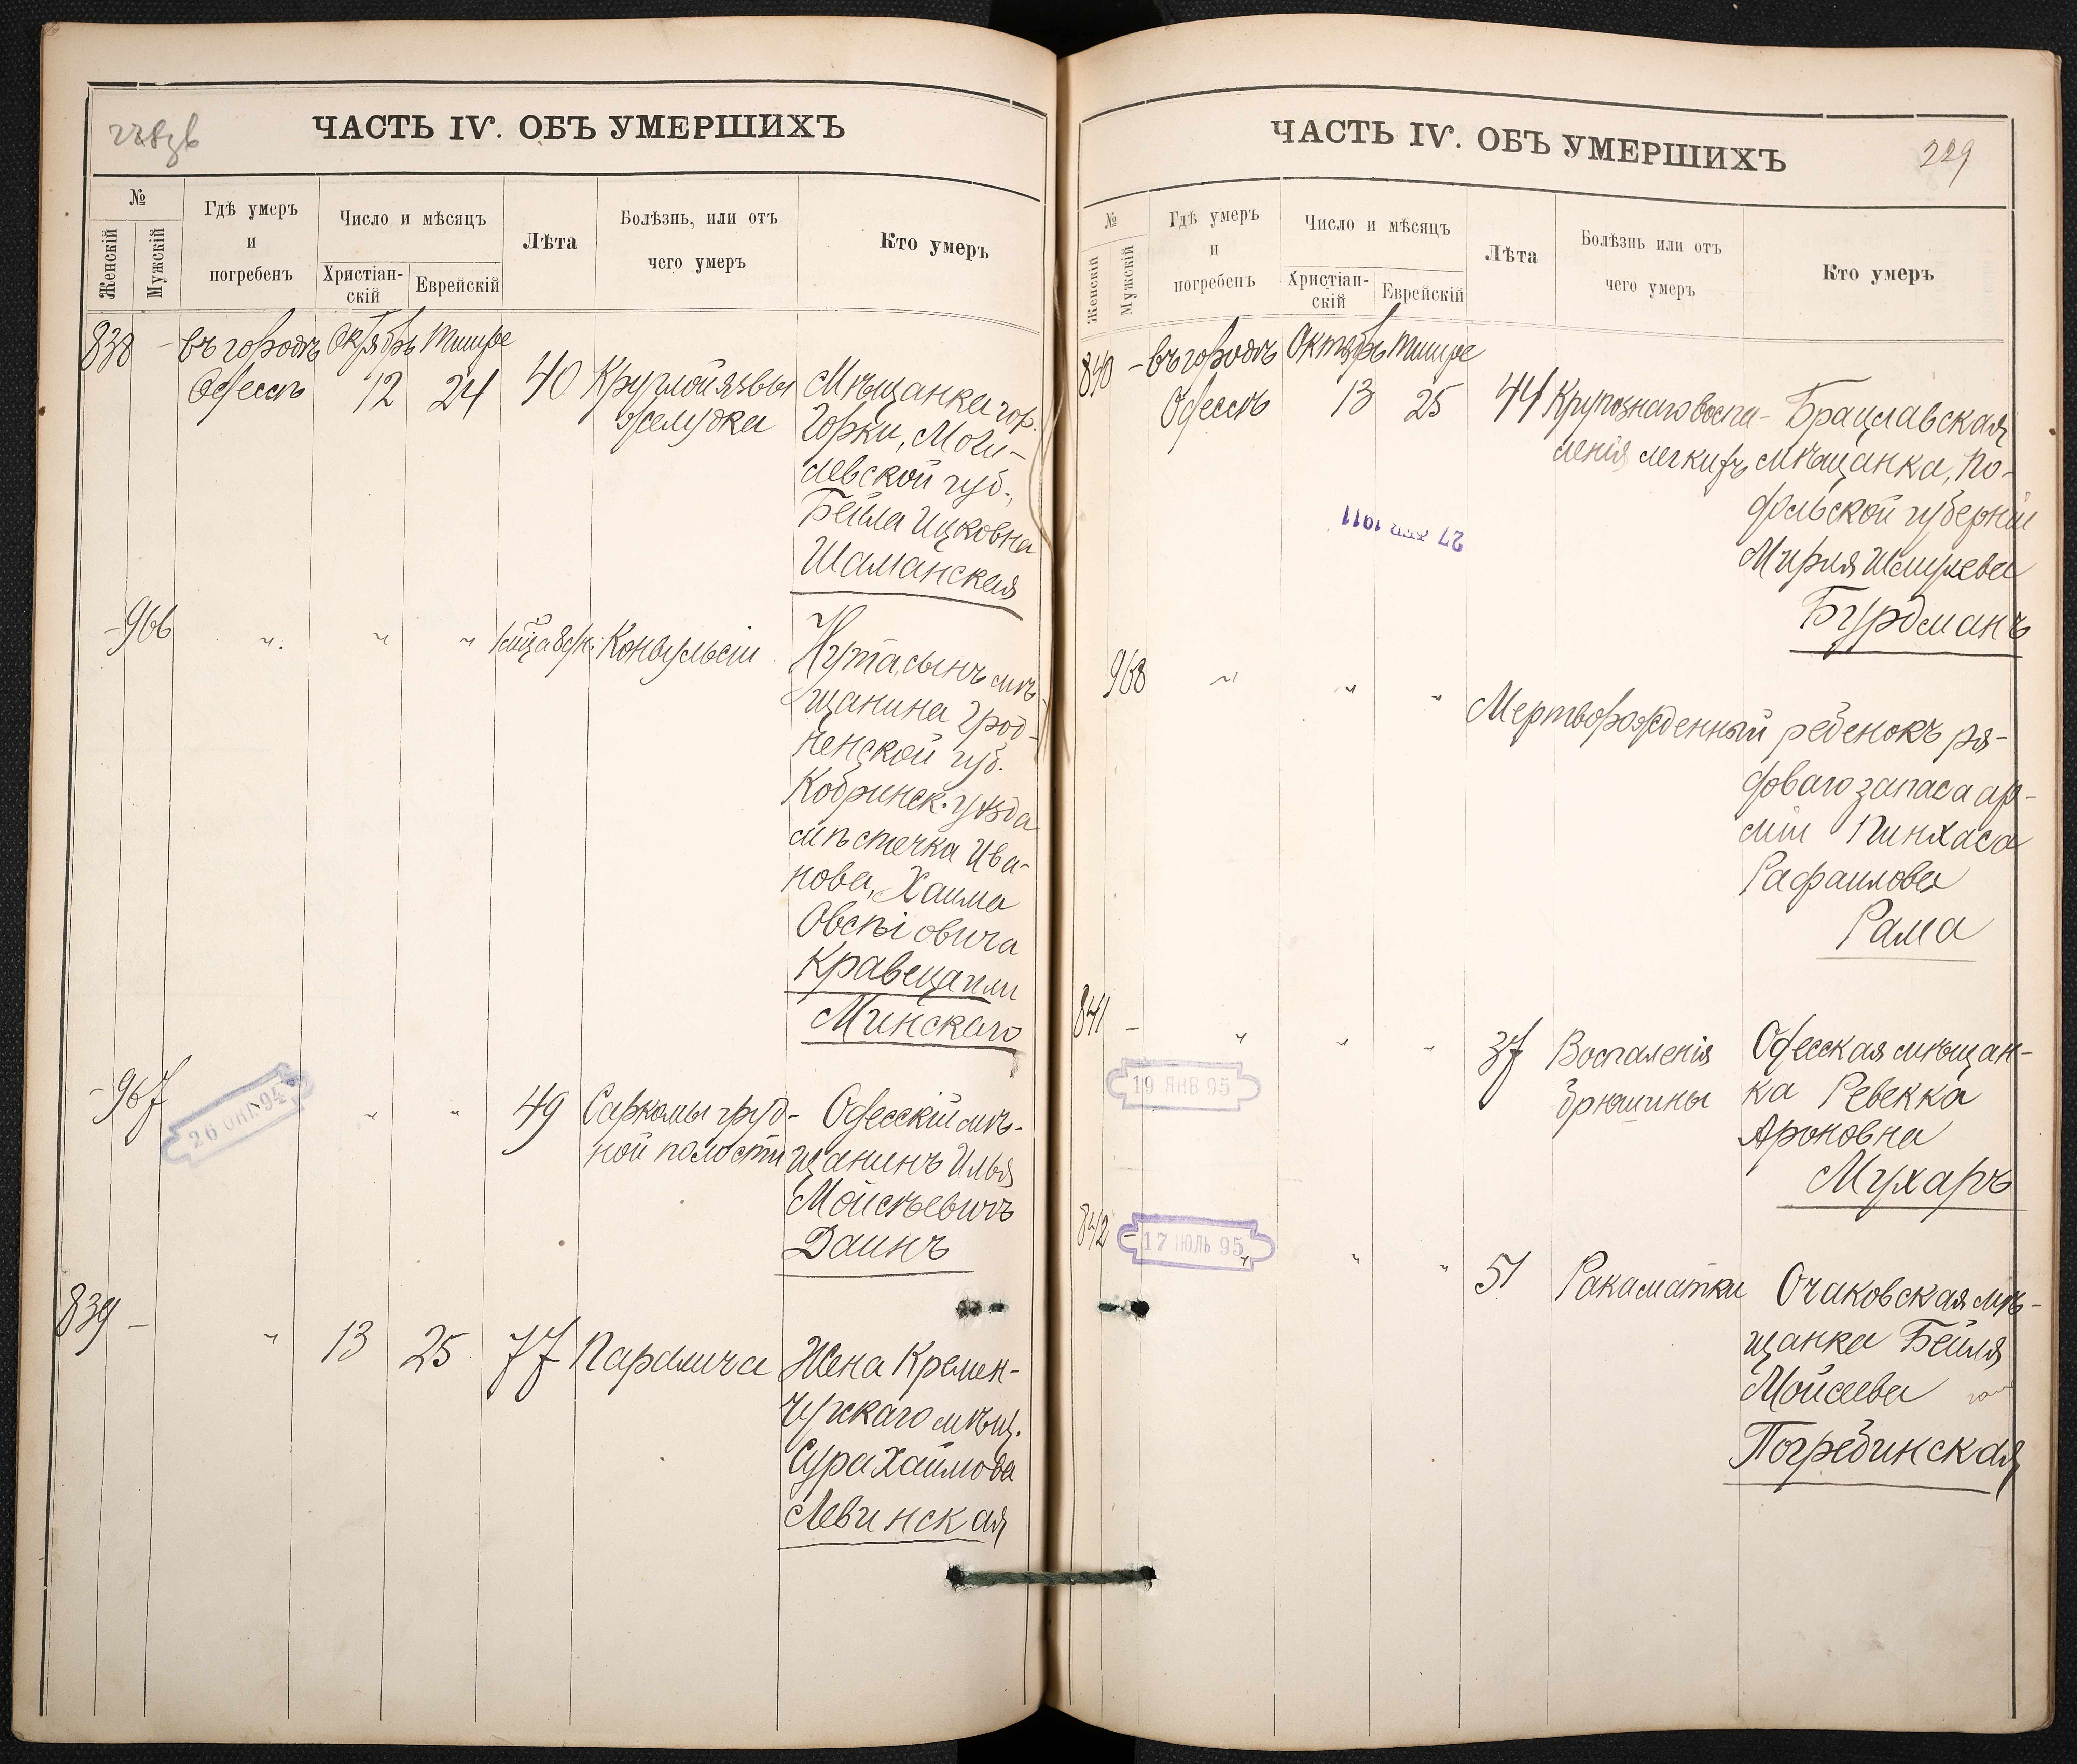 ЧАСТЬ IV. ОБЪ УМЕРШИХЪ
№
Женскій
Мужскій
Гдѣ умеръ
и
погребенъ
Число и мѣсяцъ
Христіан-
скій
Еврейскій
Лѣта
Болѣзнь, или отъ
чего умеръ
Кто умеръ
838 - въ городѣ Октябрь Тишре
Одессѣ 12 24 40 Круглой язвы
желудка
Мѣщанка гор.
Горки, Моги-
левской губ.,
Бейла Ицковна
Шаманская
- 966 " " " 1 мца 8 дн. Конвульсіи
Нута, сынъ мѣ-
щанина Грод-
ненской губ.
Кобринск. уѣзда
мѣстечка Ива-
нова, Хаима
Овсѣіовича
Кравеца или
Минскаго
- 967 " " 49 Саркомы груд-
ной полости
26 ОКТ 94
Одесскій мѣ-
щанинъ Илья
Мойсѣевичъ
Даинъ
839 - " 13 25 77 Паралича
Жена Кремен-
чугскаго мѣщ.
Сура Хаимова
Левинская
ЧАСТЬ IV. ОБЪ УМЕРШИХЪ
229
№
Женскій
Мужскій
Гдѣ умеръ
и
погребенъ
Число и мѣсяцъ
Христіан-
скій
Еврейскій
Лѣта
Болѣзнь или отъ
чего умеръ
Кто умеръ
840 - въ городѣ Октябрь Тишре
Одессѣ 13 25 44 Крупознаго воспа-
ленія легкихъ
27 ФЕВ 1911
Брацлавская
мѣщанка, По-
дольской губерніи
Мирля Шмулева
Бурдманъ
968 " " "
Мертворожденный ребенокъ ря-
доваго запаса ар-
міи Пинхаса
Рафаилова
Рама
841 - " " " 37 Воспаленія
брюшины
19 ЯНВ 95
Одесская мѣщан-
ка Ревекка
Ароновна
Мухаръ
842 - " " " 51 Рака матки
17 ІЮЛЬ 95
Очаковская мѣ-
щанка Бейля
Мойсеева
Погребинская